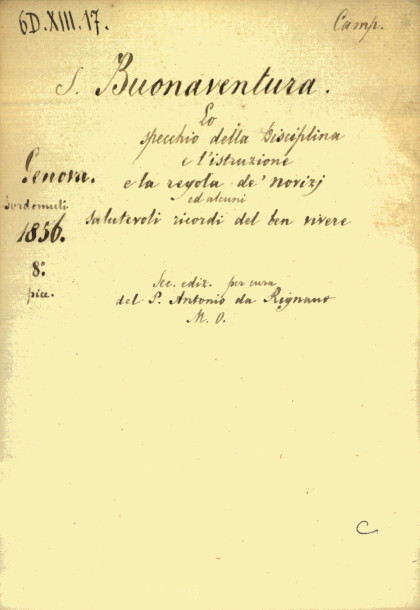 6D.XIII.17.
Camp.
S. Buonaventura.
Lo
specchio della Disciplina
e l'istruzione
Genova.
e la regola de' novizj
ed alcuni
Sordomuti
salutevoli ricordi del ben vivere
1856.
8.º
picc.
Sec. ediz. per cura
del P. Antonio da Rignano
M. O.
C